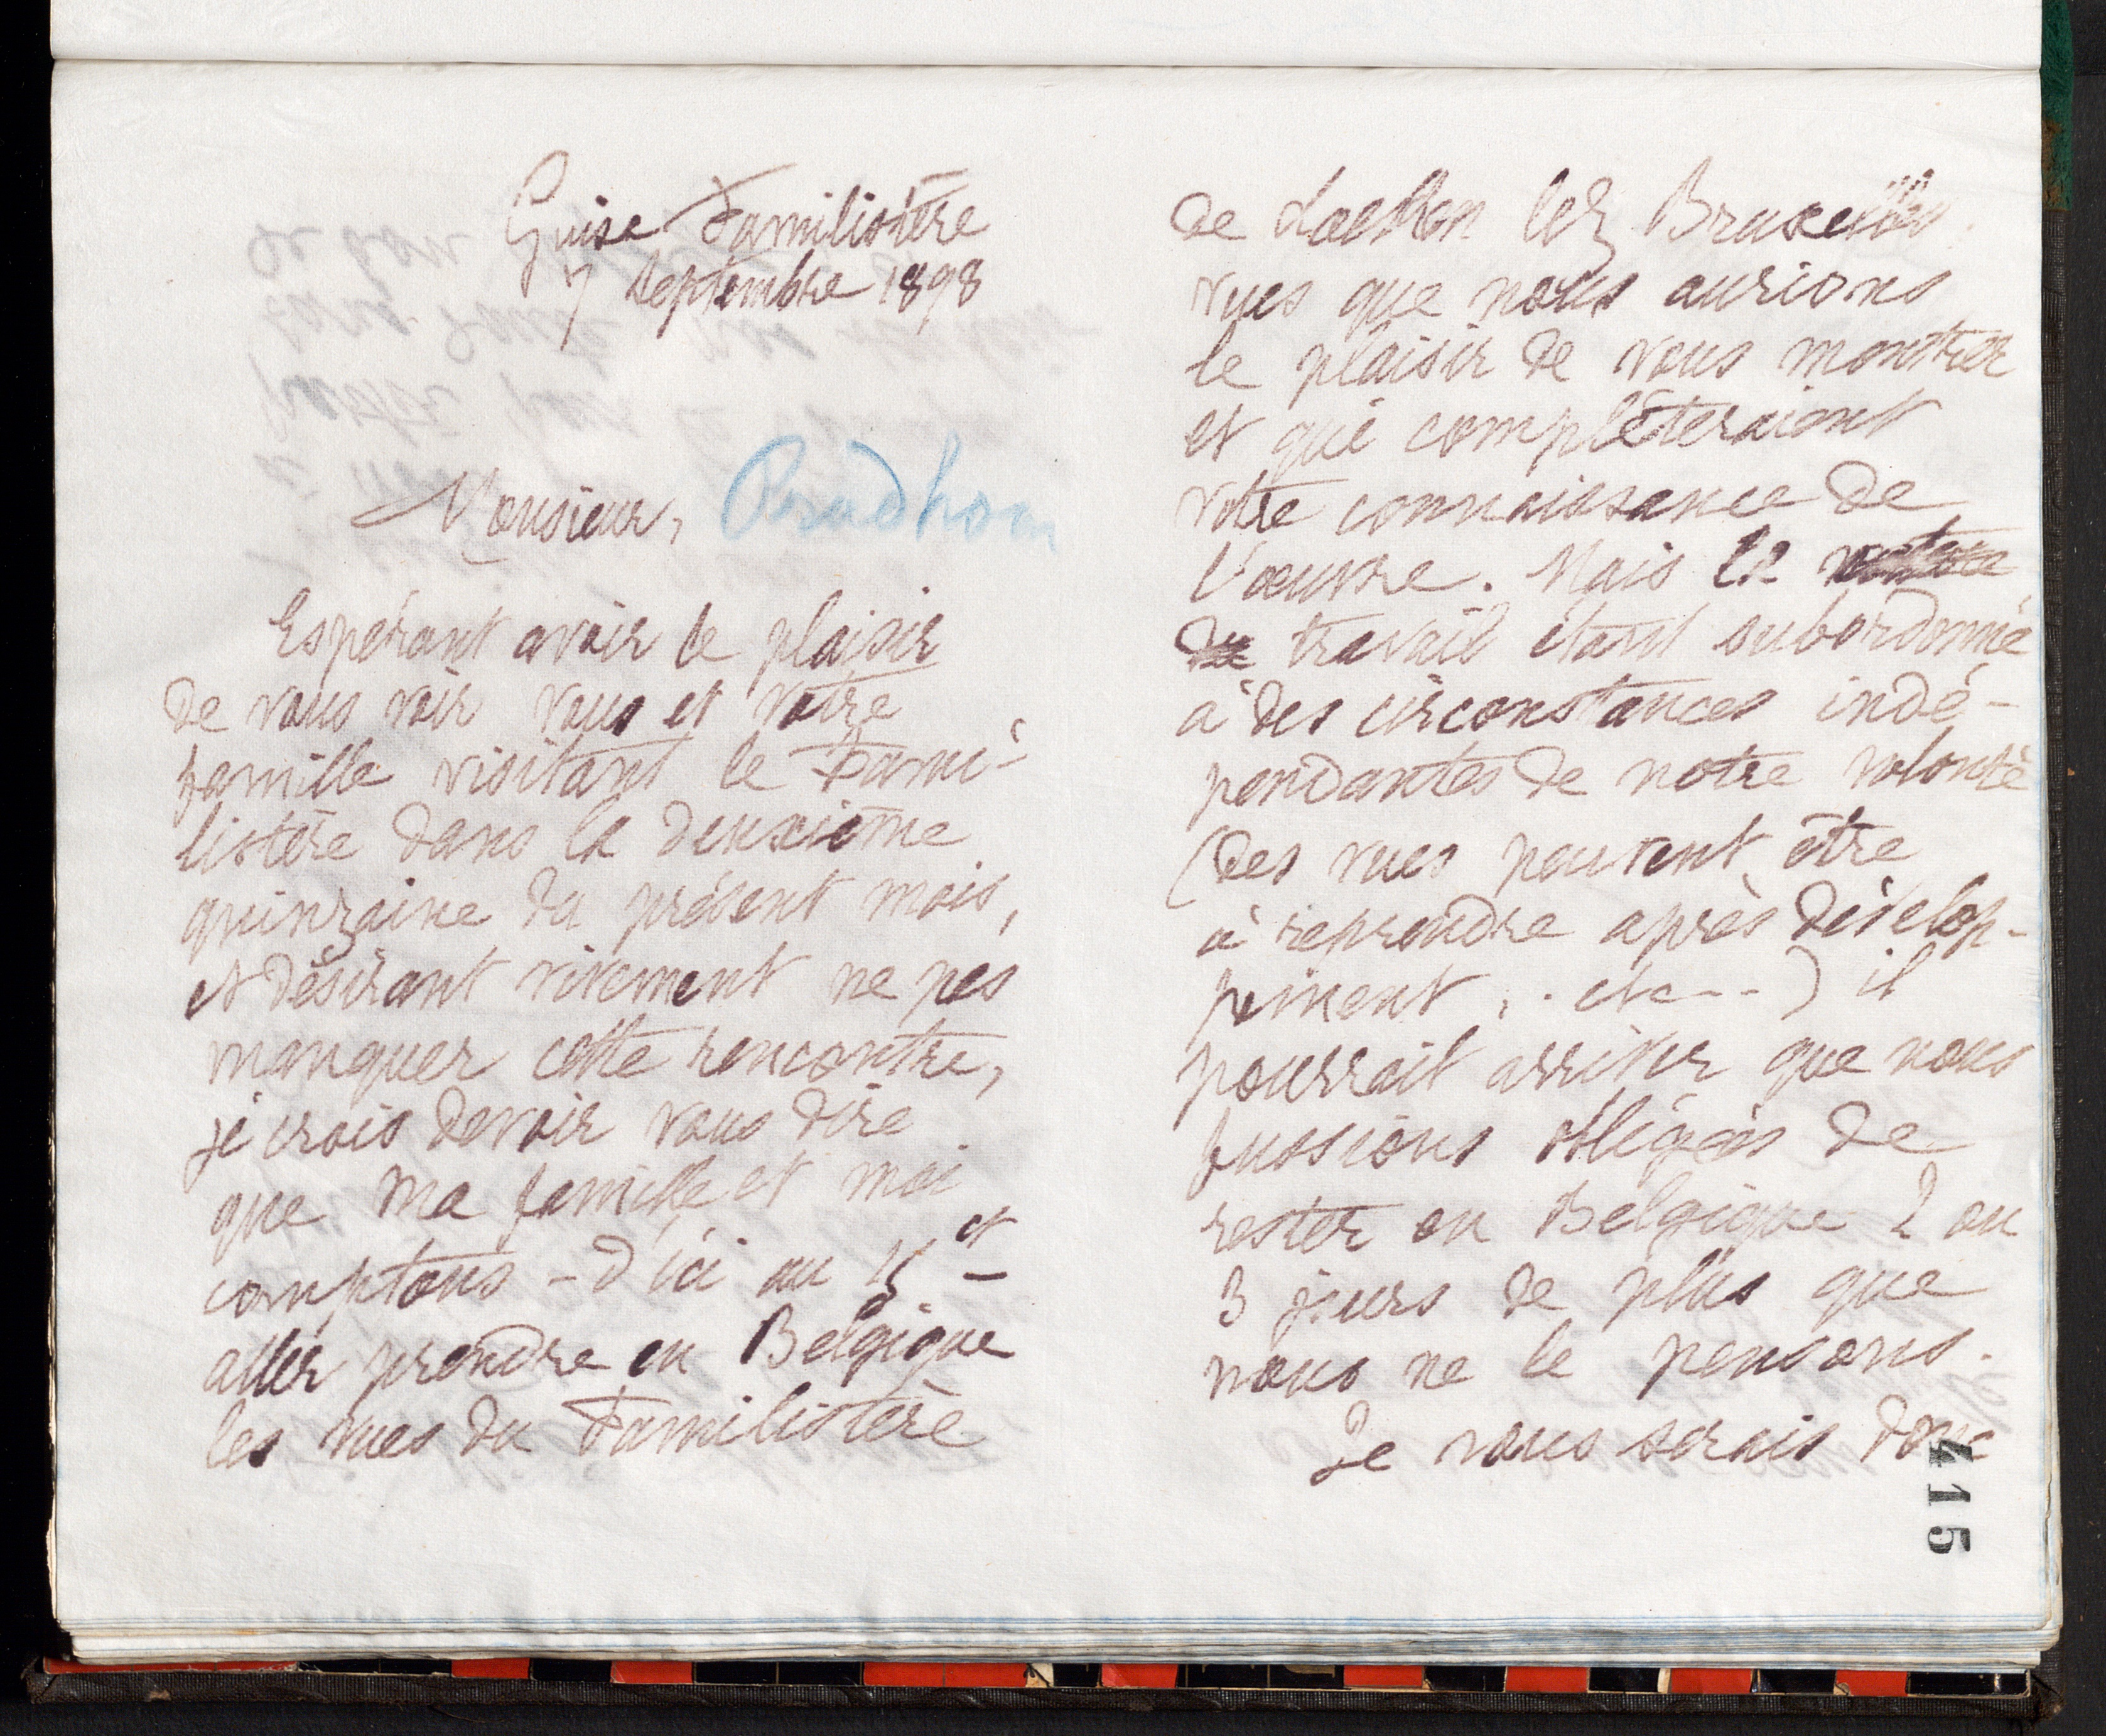 Guise Familistère
7 Septembre 1898
Monsieur, Prudhom
Espérant avoir le plaisir
de vous voir vous et votre
famille visitant le Fami-
listère dans la deuxième
quinzaine du présent mois,
et désirant vivement ne pas
manquer cette rencontre,
je crois devoir vous dire
que ma famille et moi
comptons - d'ici au 15 ct -
aller prendre en Belgique
les vues du Familistère
de Laeken lez Bruxelles
vues que nous aurions
le plaisir de vous montrer
et qui complèteraient
votre connaissance de
l'œuvre. Mais le
travail étant subordonné
à des circonstances indé-
pendantes de notre volonté
(des vues peuvent être
à reprendre après dévelop-
pement, . etc--) il
pourrait arriver que nous
fussions obligés de
rester en Belgique 2 ou
3 jours de plus que
nous ne le pensons.
Je vous serais donc
415